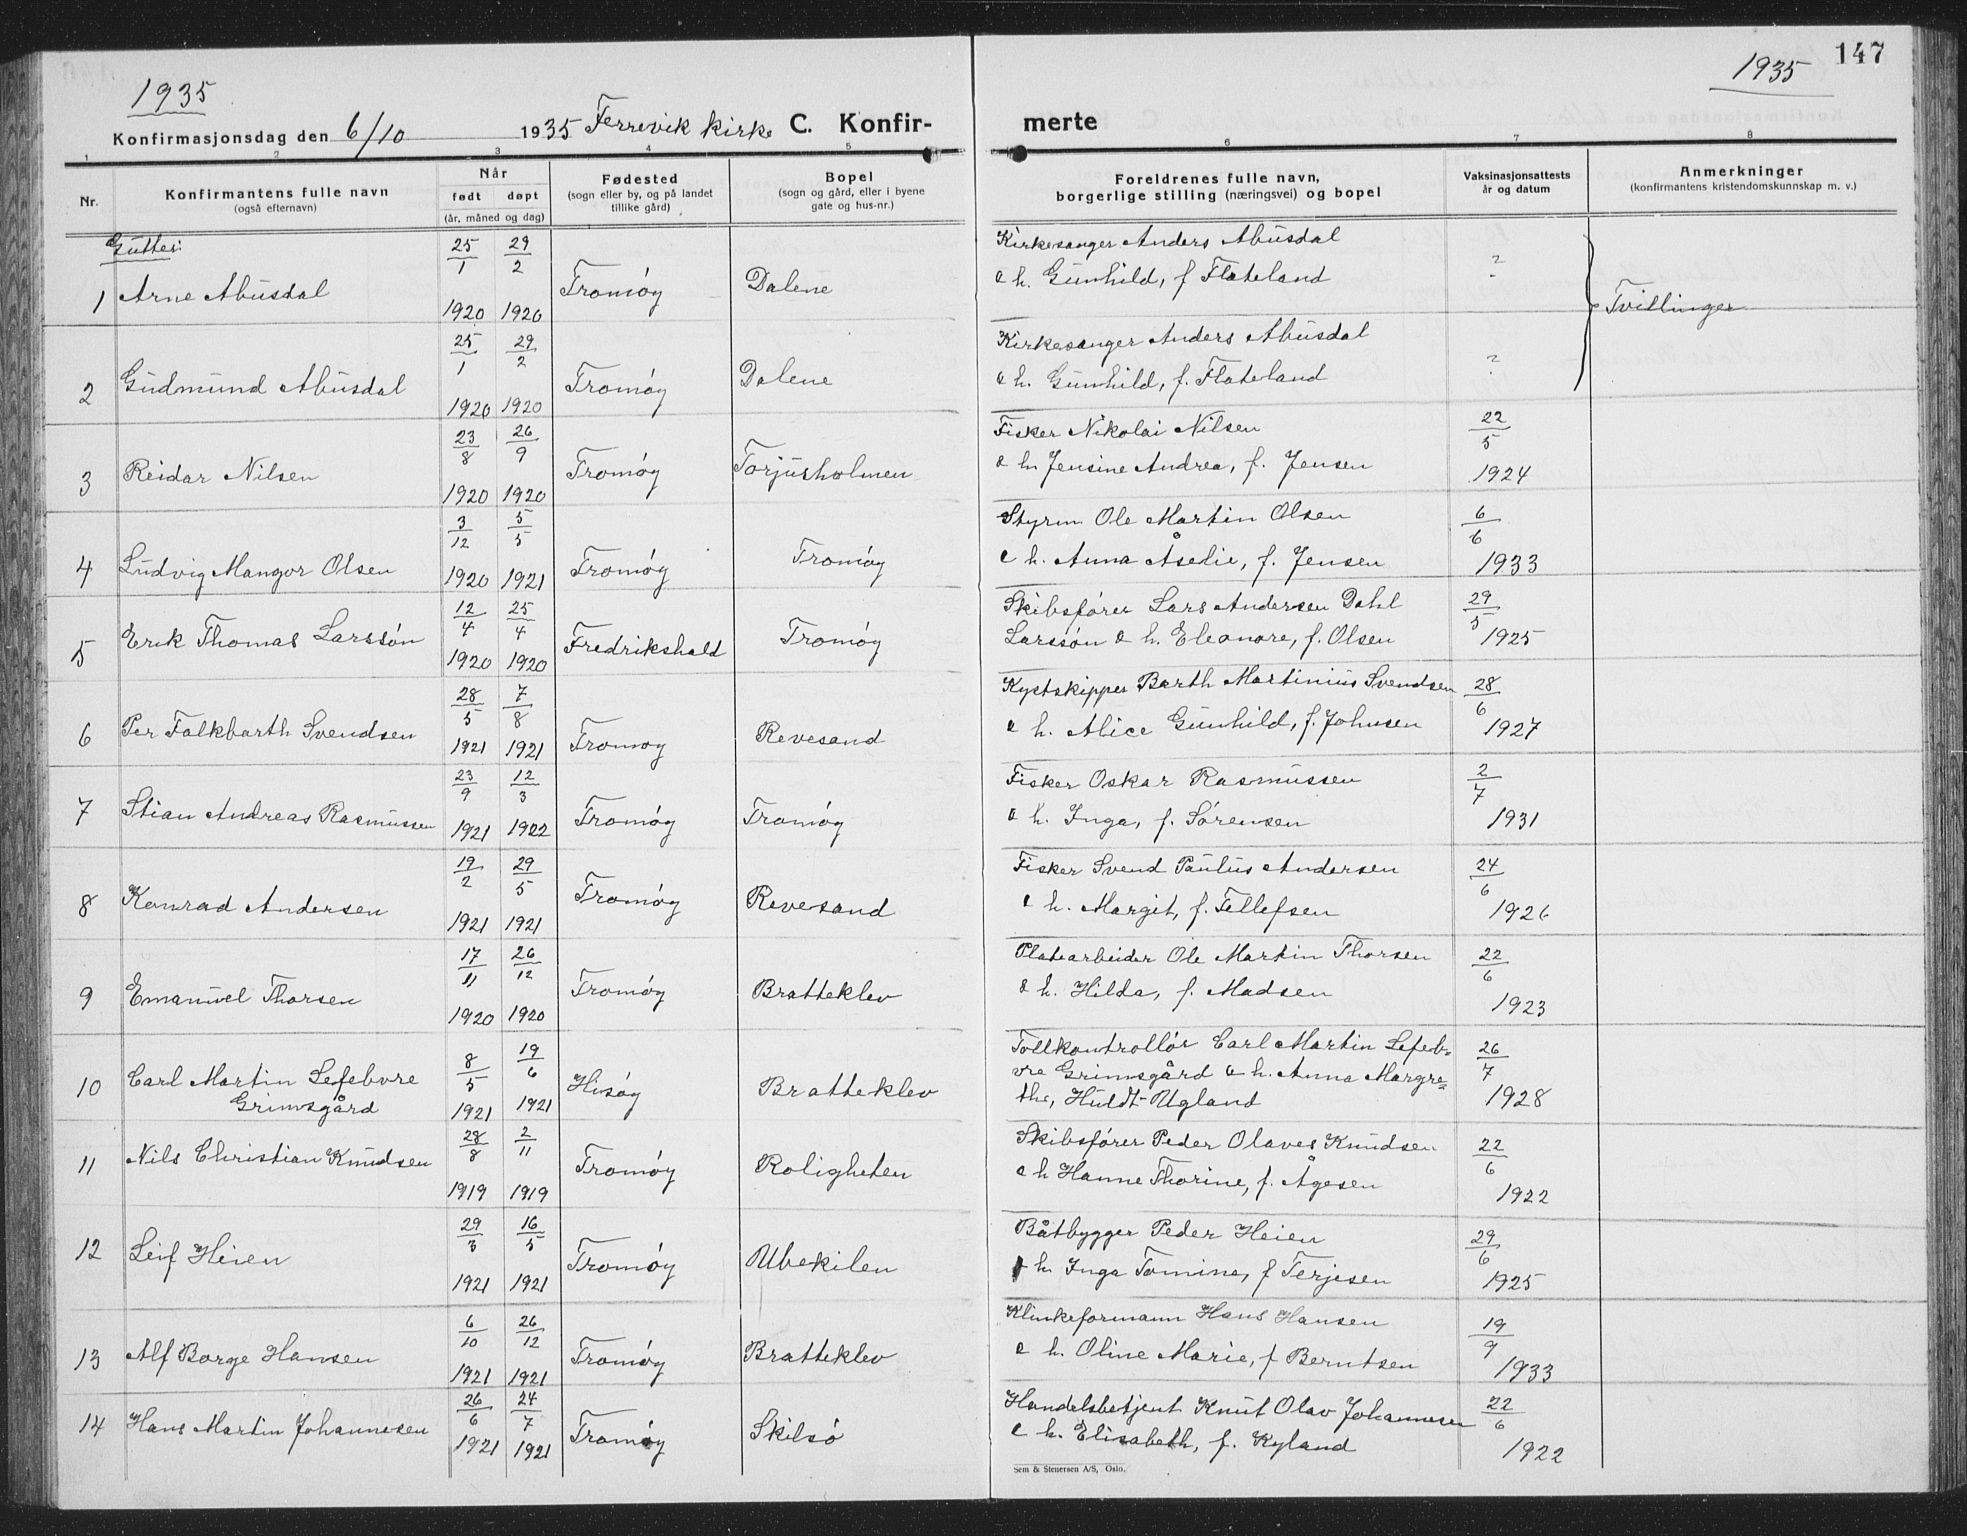 1935
1935 147
Konfirmasjonsdag den 6/10 1935 Færevik kirke C. Konfir-merte
1 2 3 4 5 6 7 8
Nr.
Konfirmantens fulle navn
(også efternavn)
Når
født døpt
(år, måned og dag)
Fødested
(sogn eller by, og på landet
tillike gård)
Bopel
(sogn og gård, eller i byene
gate og hus-nr.)
Foreldrenes fulle navn,
borgerlige stilling (næringsvei) og bopel
Vaksinasjonsattests
år og datum
Anmerkninger
(konfirmantens kristendomskunnskap m. v.)
Gutter:
1 Arne Abusdal 25/1 1920 29/2 1920 Tromøy Dalene Kirkesanger Anders Abusdal
& h. Gunhild, f Flateland ? Tvillinger
2 Gudmund Abusdal 25/1 1920 29/2 1920 Tromøy Dalene Kirkesanger Anders Abusdal
& h. Gunhild, f. Flateland ?
3 Reidar Nilsen 23/8 1920 26/9 1920 Tromøy Torjusholmen Fisker Nikolai Nilsen
& h. Jensine Andrea, f. Jensen 22/5 1924
4 Ludvig Mangor Olsen 3/12 1920 5/5 1921 Tromøy Tromøy Styrm Ole Martin Olsen
& h. Anna Åsedie, f. Jensen 6/6 1933
5 Erik Thomas Larssøn 12/4 1920 25/4 1920 Fredrikshald Tromøy Skibsfører Lars Andersen Dahl
Larssøn & h. Eleonore, f. Olsen 29/5 1925
6 Per Falkbarth Svendsen 28/5 1921 7/8 1921 Tromøy Revesand Kystskipper Barth Martinius Svendsen
& h. Alice Gunhild, f. Johnsen 28/6 1927
7 Stian Andreas Rasmussen 23/9 1921 12/3 1922 Tromøy Tromøy Fisker Oskar Rasmussen
& h. Inga, f. Sørensen 2/7 1931
8 Konrad Andersen 19/2 1921 29/5 1921 Tromøy Revesand Fisker Svend Paulus Andersen
& h. Margit, f. Tellefsen 24/6 1926
9 Emanuel Thorsen 17/11 1920 26/12 1920 Tromøy Bratteklev Platearbeider Ole Martin Thorsen
& h. Hilda, f. Madsen 22/6 1923
10 Carl Martin Lefebvre
Grimsgård 8/5 1921 19/6 1921 Hisøy Bratteklev Tollkontrollør Carl Martin Lefeb-
vre Grimsgård & h. Anna Margre-
the, Huldt-Ugland 26/7 1928
11 Nils Christian Knudsen 28/8 1919 2/11 1919 Tromøy Roligheten Skibsfører Peder Olaves Knudsen
& h Hanne Thorine, f. Ågesen 22/6 1922
12 Leif Heien 29/3 1921 16/5 1921 Tromøy Ubekilen Båtbygger Peder Heien
& h. Inga Tomine, f Terjesen 29/6 1925
13 Alf Borge Hansen 6/10 1921 26/12 1921 Tromøy Bratteklev Klinkeformann Hans Hansen
& h. Oline Marie, f Berntsen 19/9 1933
14 Hans Martin Johannesen 26/6 1921 24/7 1921 Tromøy Skilsø Handelsbetjent Knut Olav Johannesen
& h. Elisabeth, f. Kyland 22/6 1922
Sem & Stenersen A/S, Oslo.